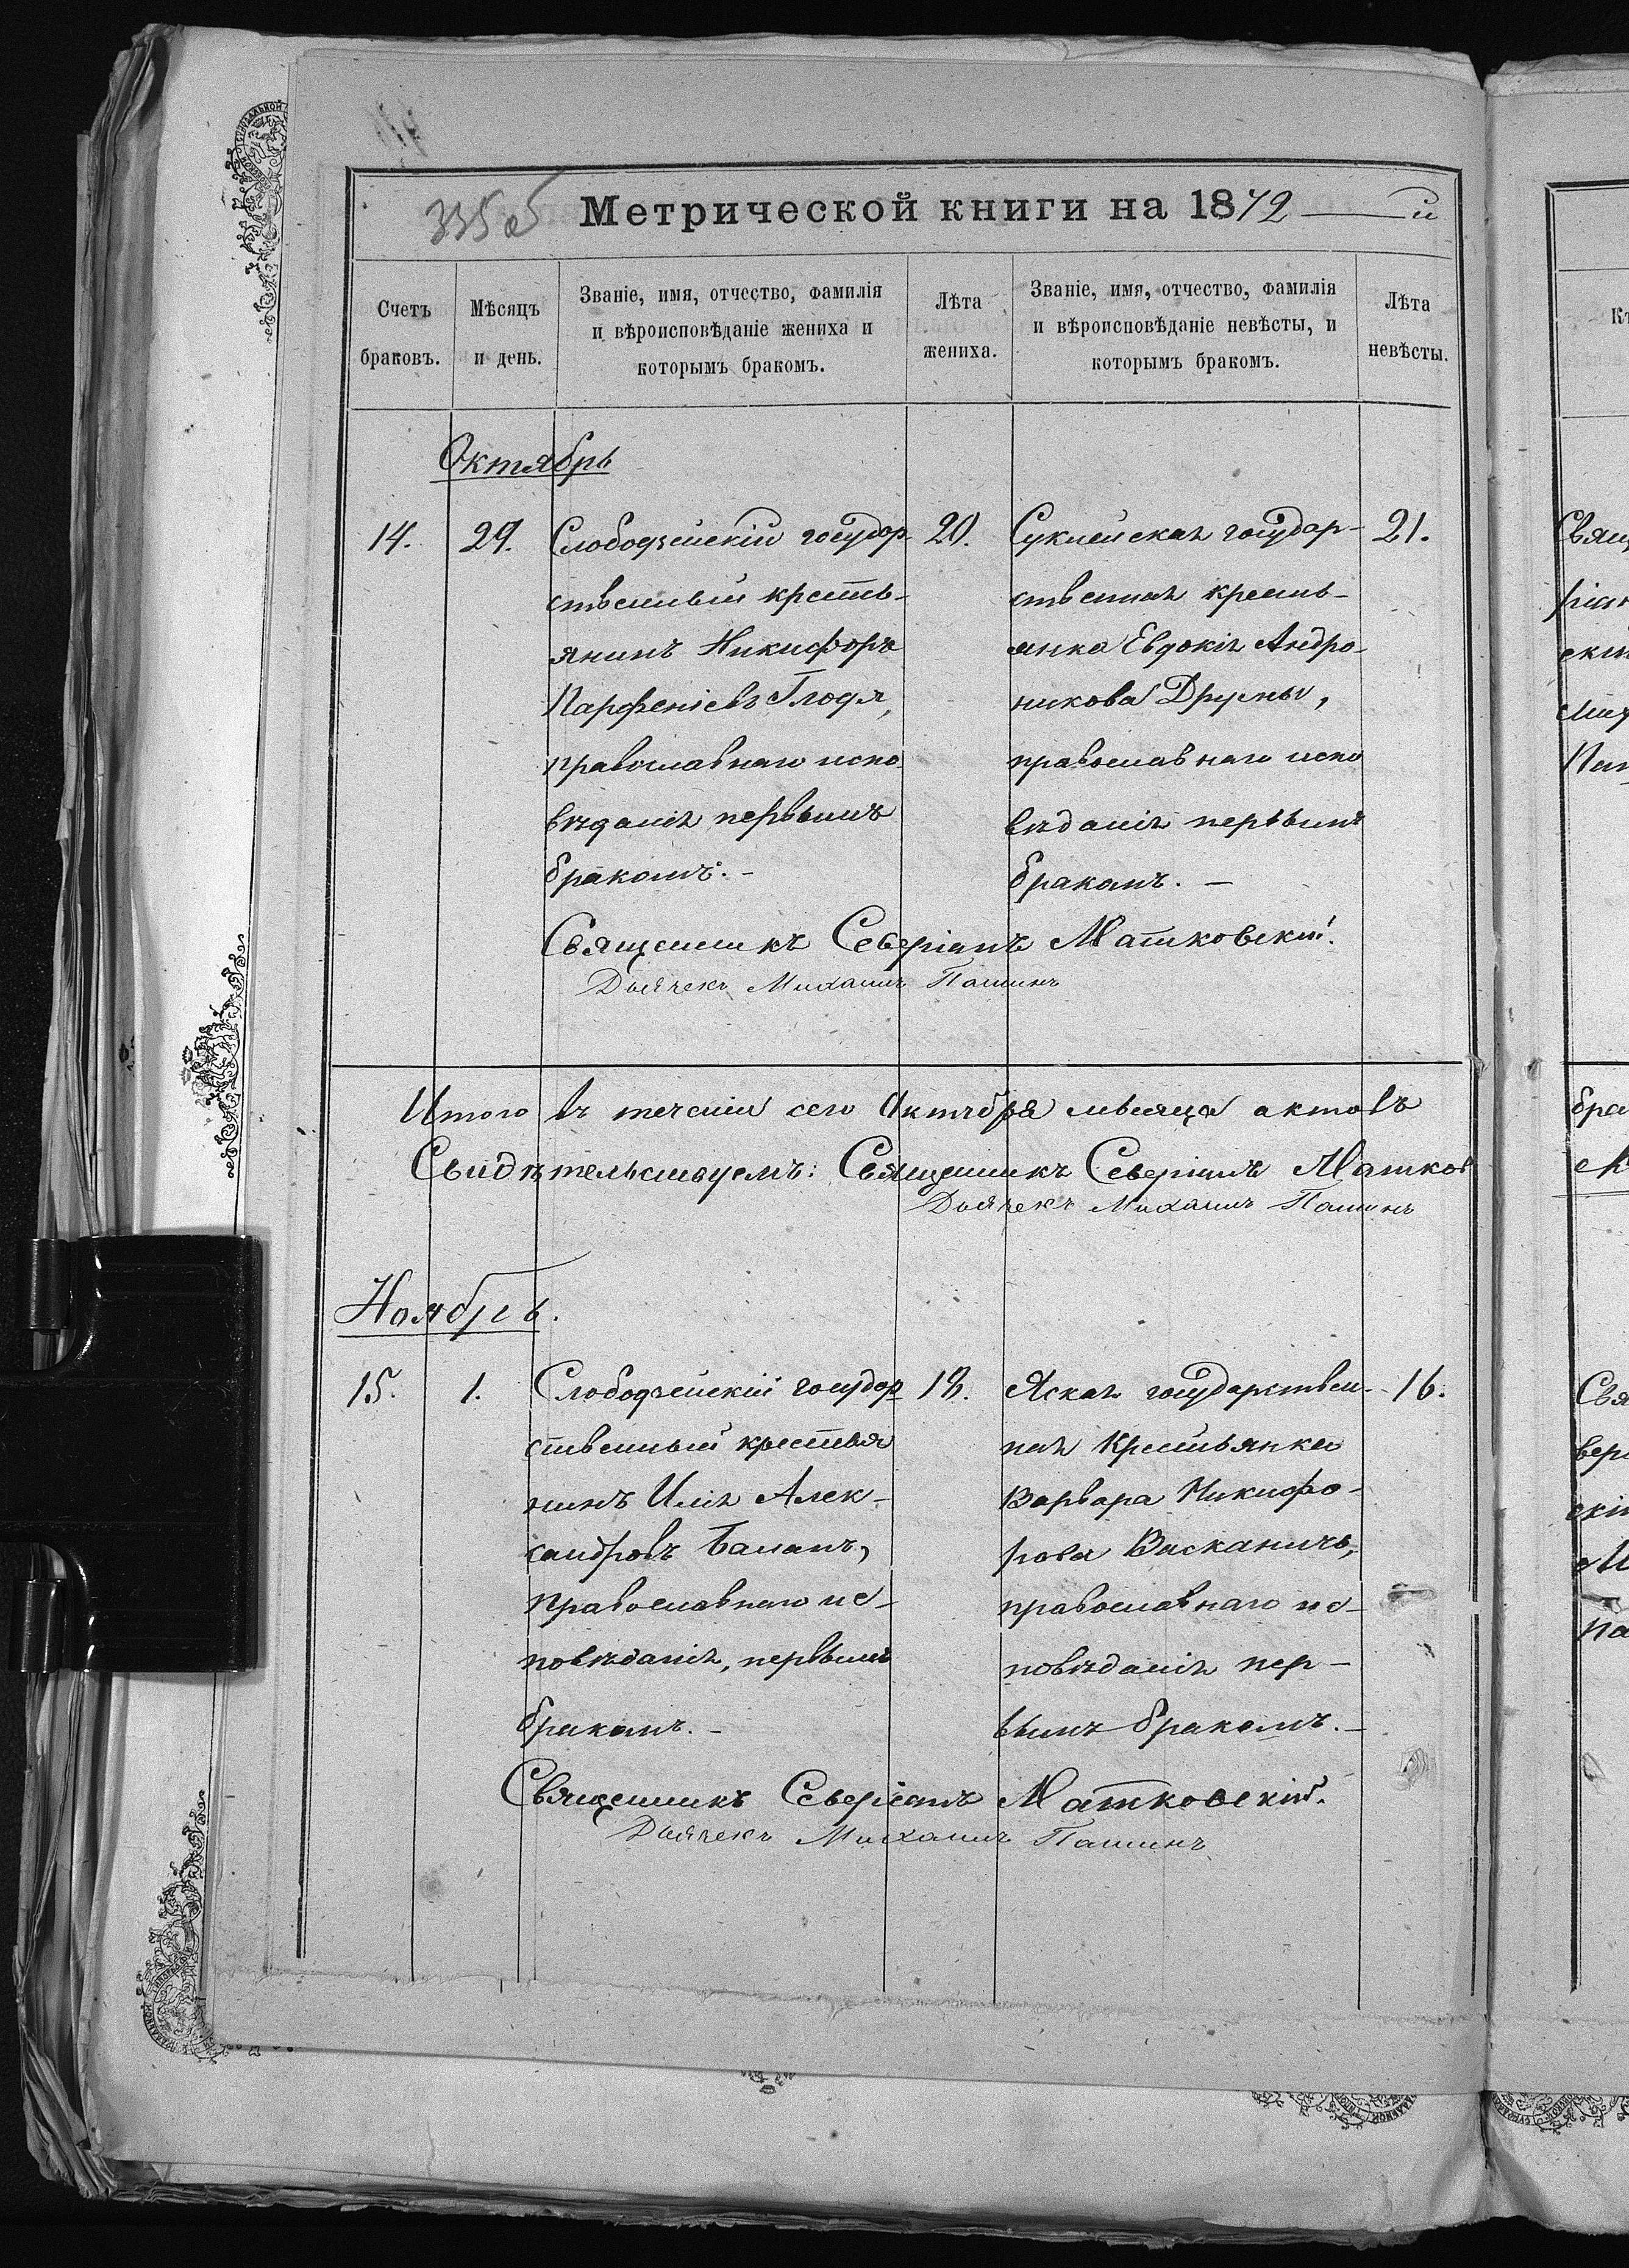 335об Метрической книги на 1872
Счетъ браковъ.
Мѣсяцъ и день.
Званіе, имя, отчество, фамилія
и вѣроисповѣданіе жениха и
которымъ бракомъ.
Лѣта жениха.
Званіе, имя, отчество, фамилія
и вѣроисповѣданіе невѣсты, и
которымъ бракомъ.
Лѣта невѣсты.
Октябрь
14. 29. Слободзейскій государ-
ственный кресть-
янинъ Никифоръ
Парфеніевъ Глодя,
православнаго испо-
вѣданія первымъ
бракомъ. -
20.
Суклейская государ-
ственная кресть-
янка Евдокія Андро-
никова Друмы,
православнаго испо
вѣданія первымъ
бракомъ. -
21.
Священникъ Северіанъ Матковскій.
Дьячекъ Михаилъ
Итого въ теченіи сего Октября мѣсяца актовъ
Свидѣтельствуемъ: Священникъ Северіанъ Матков
Дьячекъ Михаилъ
Ноябрь.
15. 1. Слободзейскій государ
ственный крестья
нинъ Илія Алек-
сандровъ Баланъ,
православнаго ис-
повѣданія, первымъ
бракомъ. -
18.
Яская государствен-
ная крестьянка
Варвара Никифо-
рова
православнаго ис-
повѣданія пер-
вымъ бракомъ. -
16.
Священникъ Северіанъ Матковскій.
Дьячекъ Михаилъ